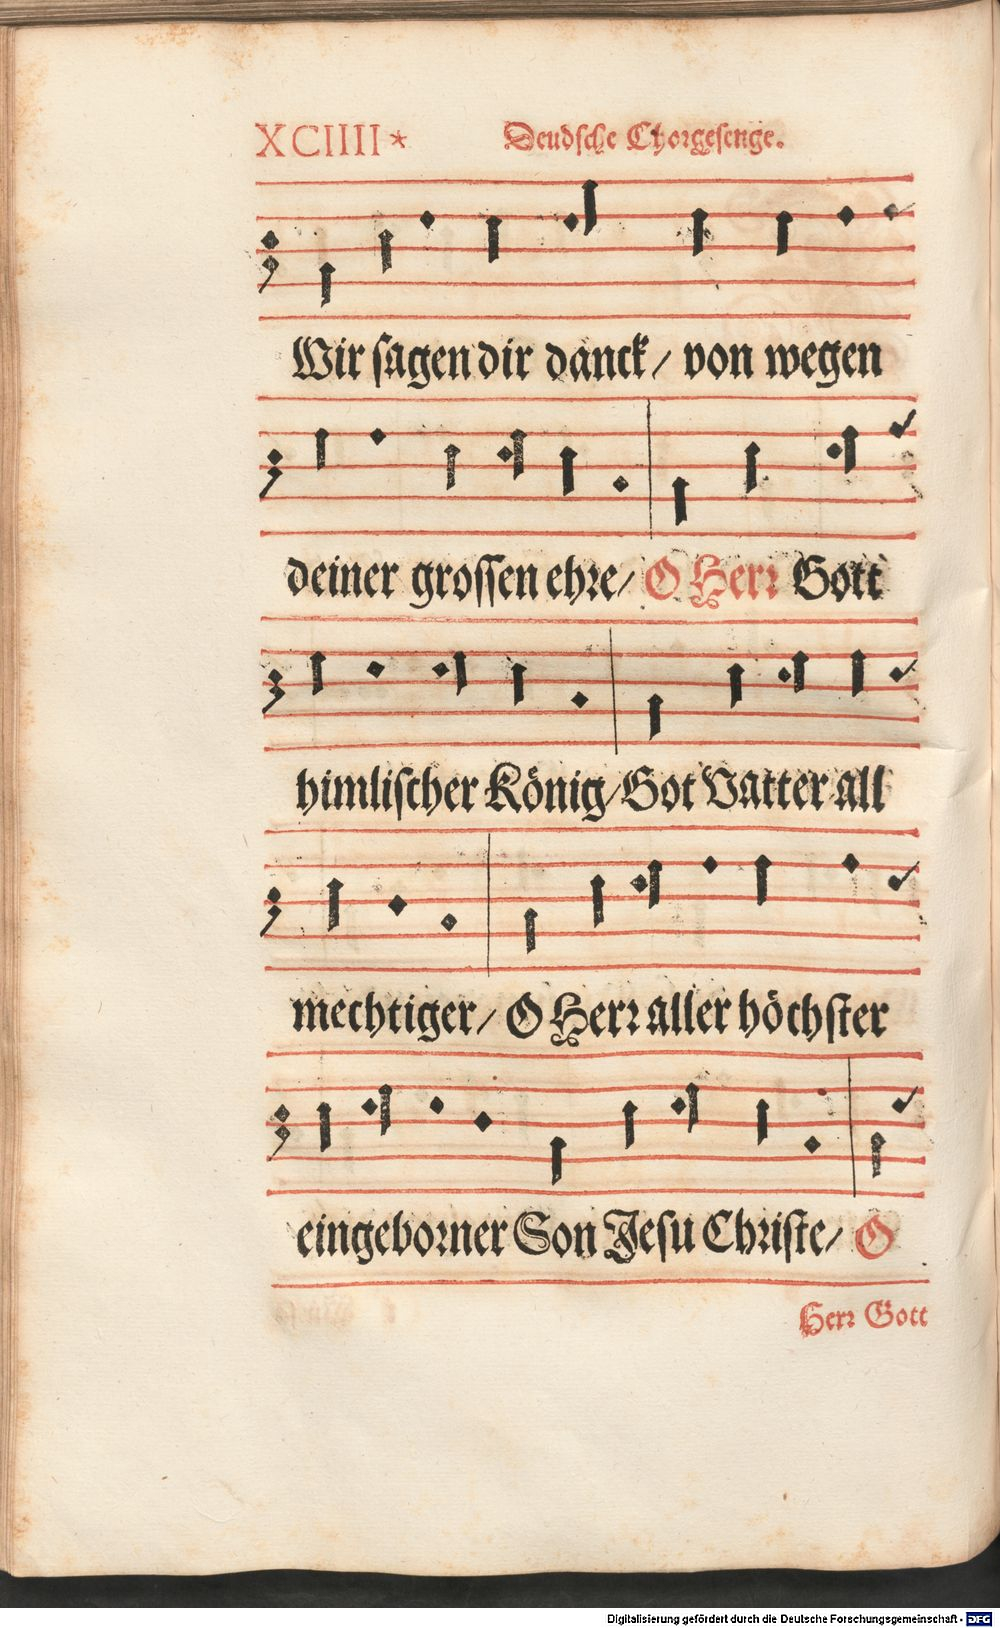 XCIIII * Deudsche Chorgesenge.
Wir sagen dir danck / von wegen
deiner grossen ehre / O Herr Gott
himlischer König / Got Vatter all
mechtiger / O Herr aller höchster
eingeborner Son Jesu Christe / O
Herr Gott
Digitalisierung gefördert durch die Deutsche Forschungsgemeinschaft - DFG